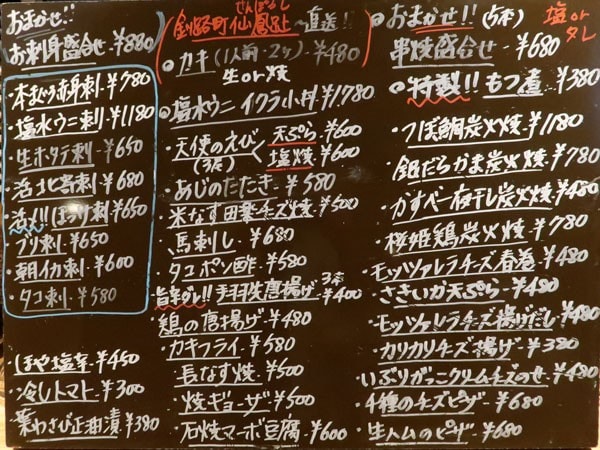 おまかせ!!
お刺身盛合せ ¥880
・本まぐろ赤身刺 ¥780
・塩水ウニ刺 ¥1180
・生ホタテ刺 ¥650
・活北寄刺 ¥680
・活〆!! ほっけ刺 ¥650
・ブリ刺 ¥650
・朝イカ刺 ¥600
・タコ刺 ¥580
・ほや塩辛 ¥450
・冷しトマト ¥300
・葉わさび正油漬 ¥380
せんぽうし
釧路町 仙鳳趾〜直送!!
・カキ(1人前・2ヶ) ¥480
生or焼
・塩水ウニ イクラ小丼 ¥1780
・天使のえび(3尾) 天ぷら ¥600
塩焼 ¥600
・あじのたたき ¥580
・米なす田楽チーズ焼 ¥500
・馬刺し ¥680
・タコポン酢 ¥580
・旨辛ダレ!! 手羽先唐揚げ 3本 ¥400
・鶏の唐揚げ ¥480
・カキフライ ¥580
・長なす焼 ¥500
・焼ギョーザ ¥500
・石焼マーボ豆腐 ¥600
・おまかせ!! (5本) 塩orタレ
串焼盛合せ ¥680
・特製!! もつ煮 ¥380
・つぼ鯛炭火焼 ¥1180
・銀だらかま炭火焼 ¥780
・かすべ一夜干し炭火焼 ¥480
・桜姫鶏炭火焼 ¥780
・モッツァレラチーズ春巻 ¥480
・さきいか天ぷら ¥480
・モッツァレラチーズ揚げだし ¥480
・カリカリチーズ揚げ ¥380
・いぶりがっこクリームチーズのせ ¥480
・4種のチーズピザ ¥680
・生ハムのピザ ¥680